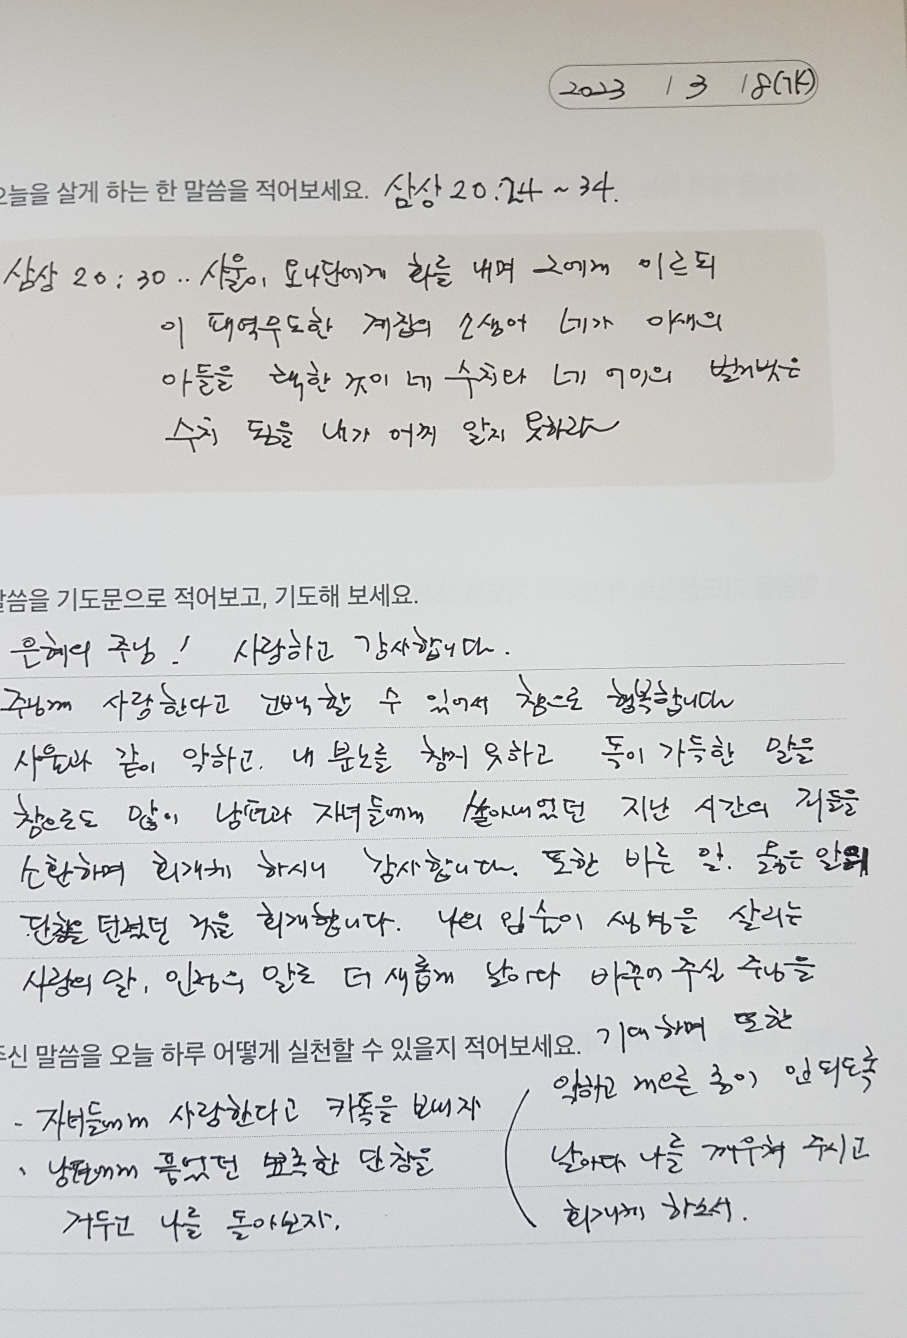 2023 / 3 / 8(수)
오늘을 살게 하는 한 말씀을 적어보세요. 삼상 20:24 ~ 34.
삼상 20 : 30 .. 사울이 요나단에게 화를 내며 그에게 이르되
이 패역무도한 계집의 소생아 네가 이새의
아들을 택한 것이 네 수치와 네 어미의 벌거벗은
수치 됨을 내가 어찌 알지 못하랴
말씀을 기도문으로 적어보고, 기도해 보세요.
은혜의 주님! 사랑하고 감사합니다.
주님께 사랑한다고 고백할 수 있어서 참으로 행복합니다
사울과 같이 악하고. 내 분노를 참지 못하고 독이 가득한 말을
참으로도 많이 남편과 자녀들에게 쏟아내었던 지난 시간의 죄들을
소환하며 회개케 하시니 감사합니다. 또한 바른 말. 옳은 말의
단창을 던졌던 것을 회개합니다. 나의 입술이 생명을 살리는
사랑의 말, 인정의 말로 더 새롭게 날마다 바꾸어 주실 주님을
기대하며 또한
주신 말씀을 오늘 하루 어떻게 실천할 수 있을지 적어보세요.
악하고 게으른 종이 안되도록
날마다 나를 깨우쳐 주시고
회개케 하소서.
- 자녀들에게 사랑한다고 카톡을 보내자
、 남편에게 품었던 뾰족한 단창을
거두고 나를 돌아보자.